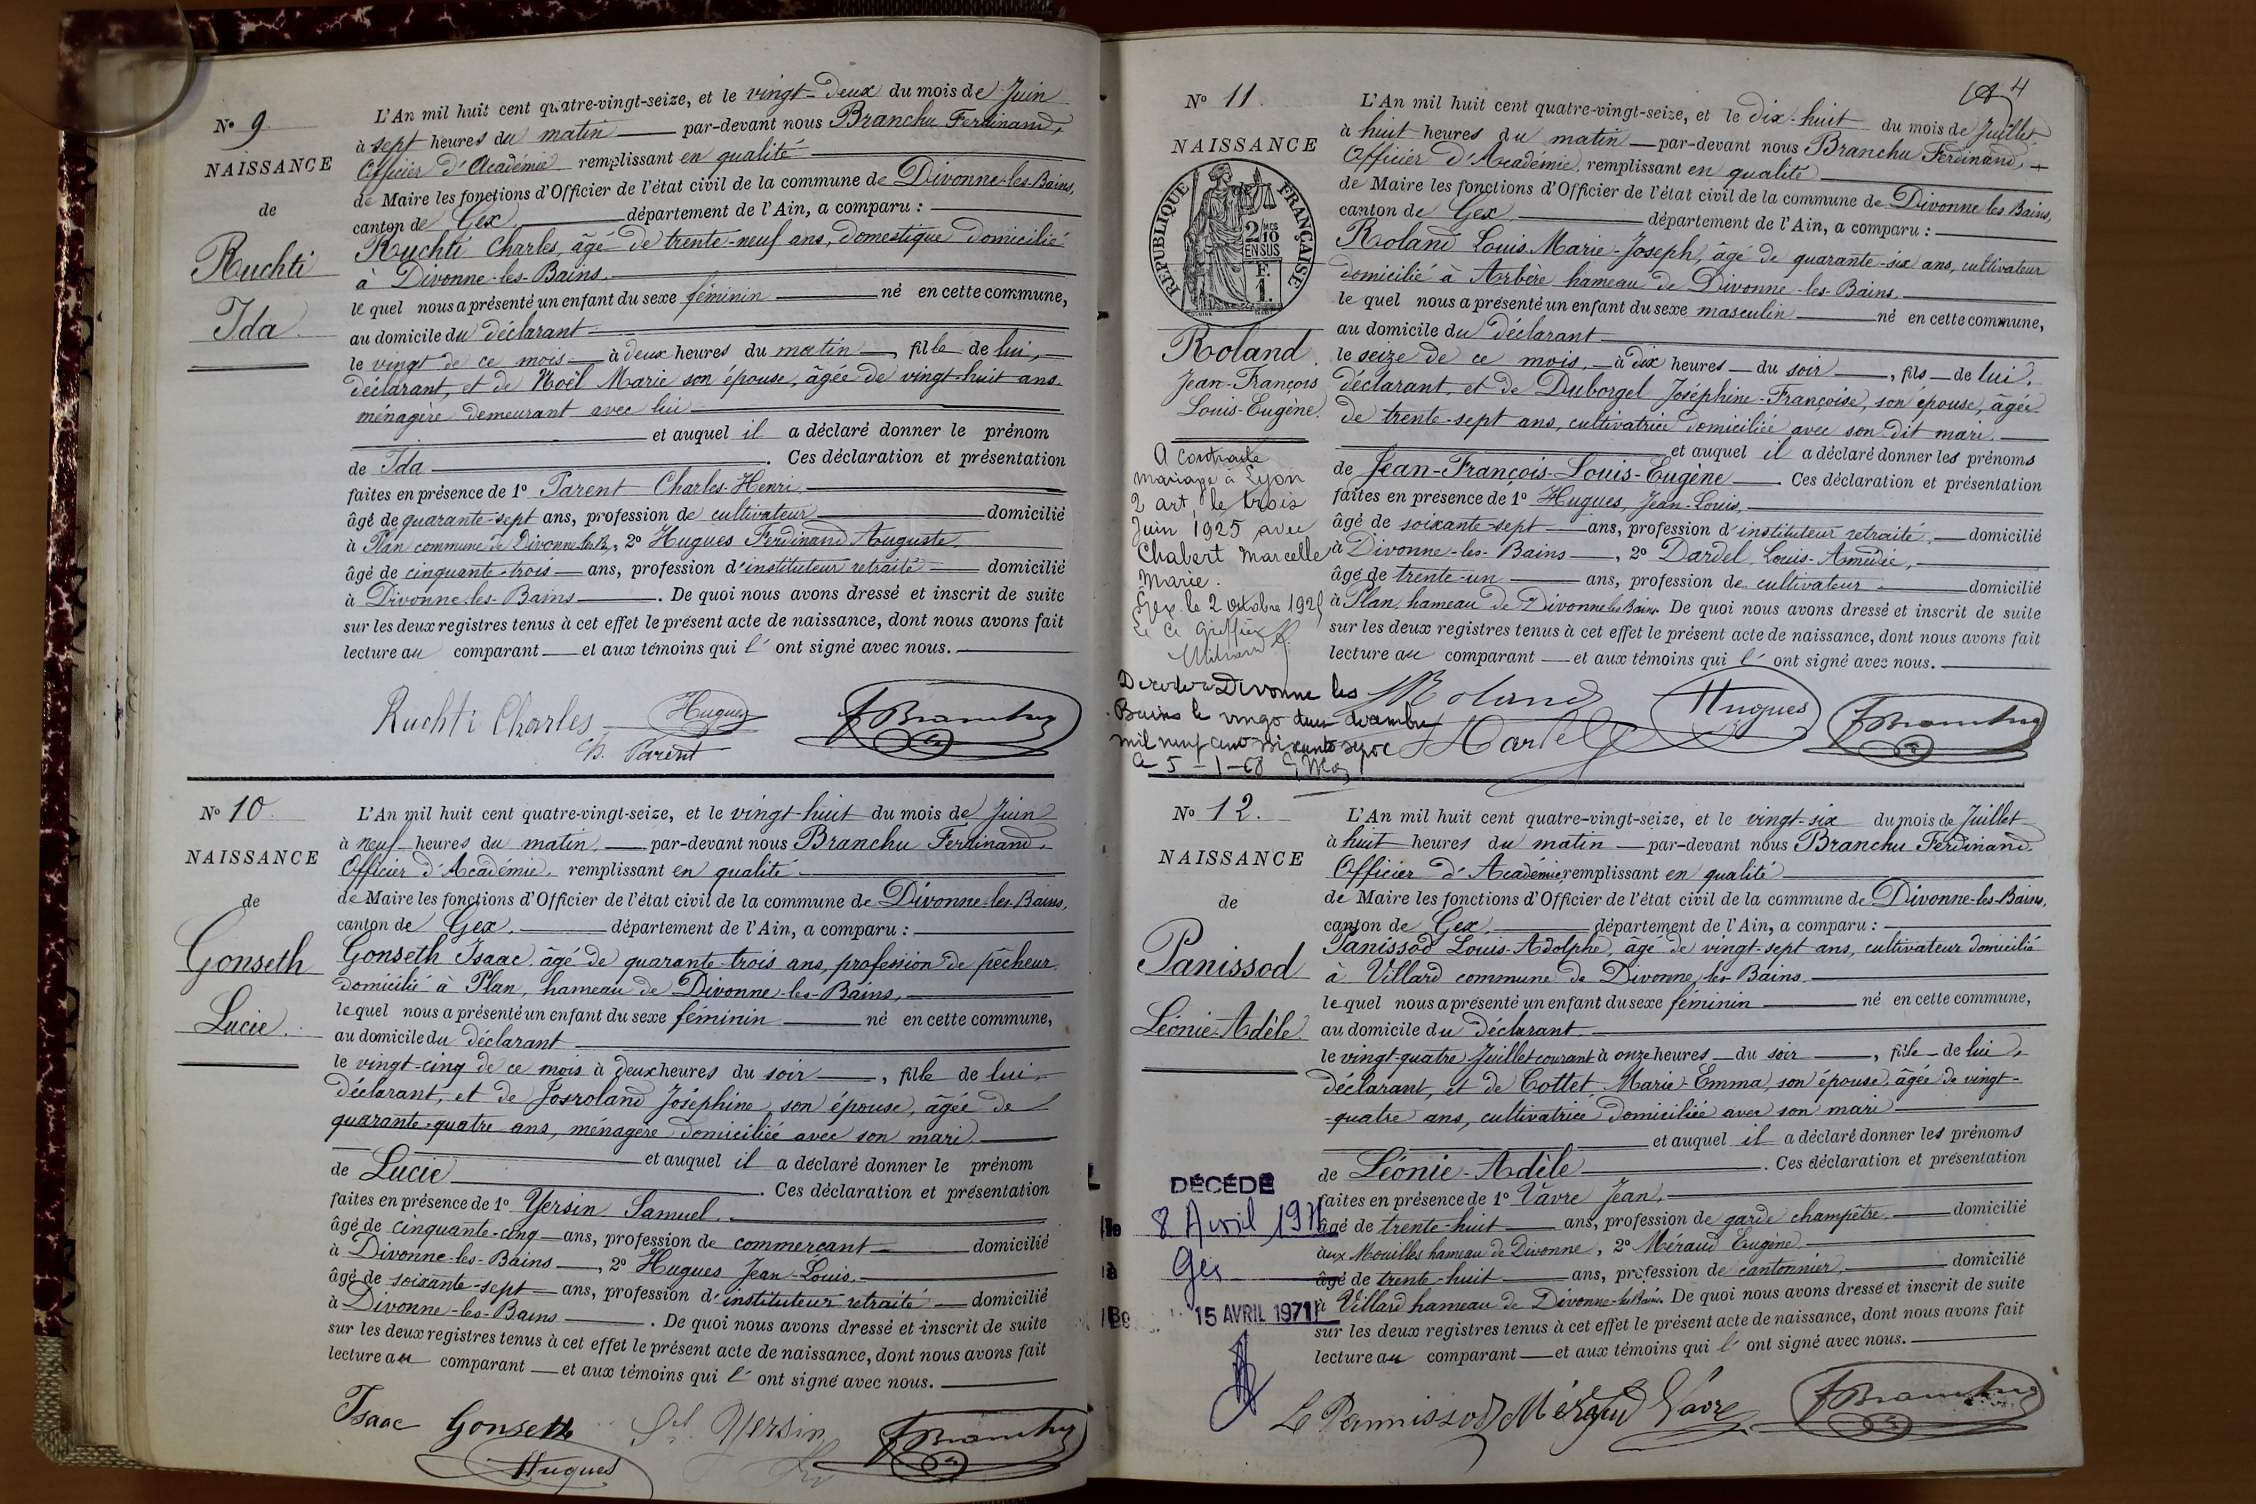 N° 9.
NAISSANCE
de
Ruchti
Ida
L'An mil huit cent quatre-vingt-seize, et le vingt-deux du mois de Juin
à sept heures du matin par-devant nous Branchu Ferdinand,
Officier d'Académie remplissant en qualité
de Maire les fonctions d'Officier de l'état civil de la commune de Divonne-les-Bains,
canton de Gex, département de l'Ain, a comparu :
Ruchti Charles, âgé de trente-neuf ans, domestique domicilié
à Divonne-les-Bains.
le quel nous a présenté un enfant du sexe féminin né en cette commune,
au domicile du déclarant
le vingt de ce mois à deux heures du matin, fille de lui,
déclarant, et de Noël Marie son épouse, âgée de vingt-huit ans.
ménagère demeurant avec lui
et auquel il a déclaré donner le prénom
de Ida. Ces déclaration et présentation
faites en présence de 1° Parent Charles-Henri,
âgé de quarante-sept ans, profession de cultivateur domicilié
à Plan commune de Divonne-les-B., 2° Hugues Ferdinand Auguste,
âgé de cinquante-trois ans, profession d'instituteur retraité domicilié
à Divonne-les-Bains. De quoi nous avons dressé et inscrit de suite
sur les deux registres tenus à cet effet le présent acte de naissance, dont nous avons fait
lecture au comparant et aux témoins qui l'ont signé avec nous.
Ruchti Charles Hugues F Branchu
h. Parent
N° 10
NAISSANCE
de
Gonseth
Lucie.
L'An mil huit cent quatre-vingt-seize, et le vingt-huit du mois de Juin
à neuf heures du matin, par-devant nous Branchu Ferdinand,
Officier d'Académie, remplissant en qualité
de Maire les fonctions d'Officier de l'état civil de la commune de Divonne-les-Bains,
canton de Gex, département de l'Ain, a comparu :
Gonseth Isaac, âgé de quarante-trois ans, profession de pêcheur,
domicilié à Plan, hameau de Divonne-les-Bains,
le quel nous a présenté un enfant du sexe féminin né en cette commune,
au domicile du déclarant
le vingt-cinq de ce mois à deux heures du soir, fille de lui,
déclarant, et de Josroland Joséphine, son épouse, âgée de
quarante-quatre ans, ménagère domiciliée avec son mari
et auquel il a déclaré donner le prénom
de Lucie. Ces déclaration et présentation
faites en présence de 1° Yersin Samuel.
âgé de cinquante-cinq ans, profession de commerçant domicilié
à Divonne-les-Bains, 2° Hugues Jean-Louis.
âgé de soixante-sept ans, profession d'instituteur retraité domicilié
à Divonne-les-Bains. De quoi nous avons dressé et inscrit de suite
sur les deux registres tenus à cet effet le présent acte de naissance, dont nous avons fait
lecture au comparant et aux témoins qui l'ont signé avec nous.
Isaac Gonseth Yersin F Branchu
Hugues
4
N° 11.
NAISSANCE
RÉPUBLIQUE FRANÇAISE
2/10 EN SUS
F. 1.
Roland
Jean-François
Louis-Eugène.
A contracté
mariage à Lyon
2 art, le trois
Juin 1925 avec
Chabert Marcelle
Marie.
Gex le 2 octobre 1925
Le Ce Greffier
Décédé à Divonne les
Bains le vingt deux décembre
mil neuf cent soixante sept
Le 5-1-68
L'An mil huit cent quatre-vingt-seize, et le dix-huit du mois de Juillet
à huit heures du matin par-devant nous Branchu Ferdinand,
Officier d'Académie, remplissant en qualité
de Maire les fonctions d'Officier de l'état civil de la commune de Divonne les Bains,
canton de Gex, département de l'Ain, a comparu :
Roland Louis Marie-Joseph, âgé de quarante-six ans, cultivateur
domicilié à Arbère hameau de Divonne-les-Bains.
le quel nous a présenté un enfant du sexe masculin né en cette commune,
au domicile du déclarant
le seize de ce mois, à dix heures du soir, fils de lui,
déclarant, et de Duborgel Joséphine-Françoise, son épouse, âgée
de trente-sept ans, cultivatrice domiciliée avec son dit mari.
et auquel il a déclaré donner les prénoms
de Jean-François-Louis-Eugène. Ces déclaration et présentation
faites en présence de 1° Hugues Jean-Louis,
âgé de soixante-sept ans, profession d'instituteur retraité, domicilié
à Divonne-les-Bains, 2° Dardel Louis-Amédée,
âgé de trente-un ans, profession de cultivateur domicilié
à Plan, hameau de Divonne les Bains. De quoi nous avons dressé et inscrit de suite
sur les deux registres tenus à cet effet le présent acte de naissance, dont nous avons fait
lecture au comparant et aux témoins qui l'ont signé avec nous.
Roland Hugues F Branchu
N° 12.
NAISSANCE
de
Panissod
Léonie-Adèle.
DÉCÉDÉ
le 8 Avril 1971
à Gex
15 AVRIL 1971
L'An mil huit cent quatre-vingt-seize, et le vingt-six du mois de Juillet
à huit heures du matin par-devant nous Branchu Ferdinand,
Officier d'Académie, remplissant en qualité
de Maire les fonctions d'Officier de l'état civil de la commune de Divonne-les-Bains,
canton de Gex, département de l'Ain, a comparu :
Panissod Louis-Adolphe, âgé de vingt-sept ans, cultivateur domicilié
à Villard commune de Divonne-les-Bains.
le quel nous a présenté un enfant du sexe féminin né en cette commune,
au domicile du déclarant.
le vingt-quatre Juillet courant à onze heures du soir, fille de lui,
déclarant, et de Cottet Marie-Emma, son épouse, âgée de vingt-
-quatre ans, cultivatrice domiciliée avec son mari
et auquel il a déclaré donner les prénoms
de Léonie-Adèle. Ces déclaration et présentation
faites en présence de 1° Vavre Jean,
âgé de trente-huit ans, profession de garde champêtre domicilié
aux Mouilles hameau de Divonne, 2° Méraud Eugène
âgé de trente-huit ans, profession de cantonnier domicilié
à Villard hameau de Divonne-les-Bains. De quoi nous avons dressé et inscrit de suite
sur les deux registres tenus à cet effet le présent acte de naissance, dont nous avons fait
lecture au comparant et aux témoins qui l'ont signé avec nous.
L Pannissod Méraud Vavre F Branchu